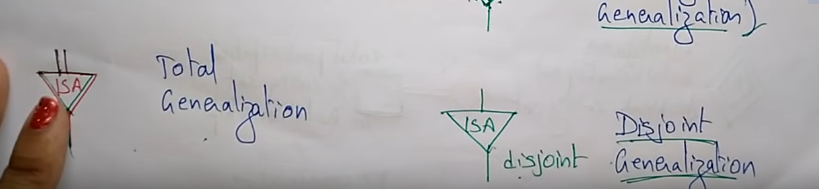 Generalization)
ISA
Total
Generalization
ISA
disjoint
Disjoint
Generalization